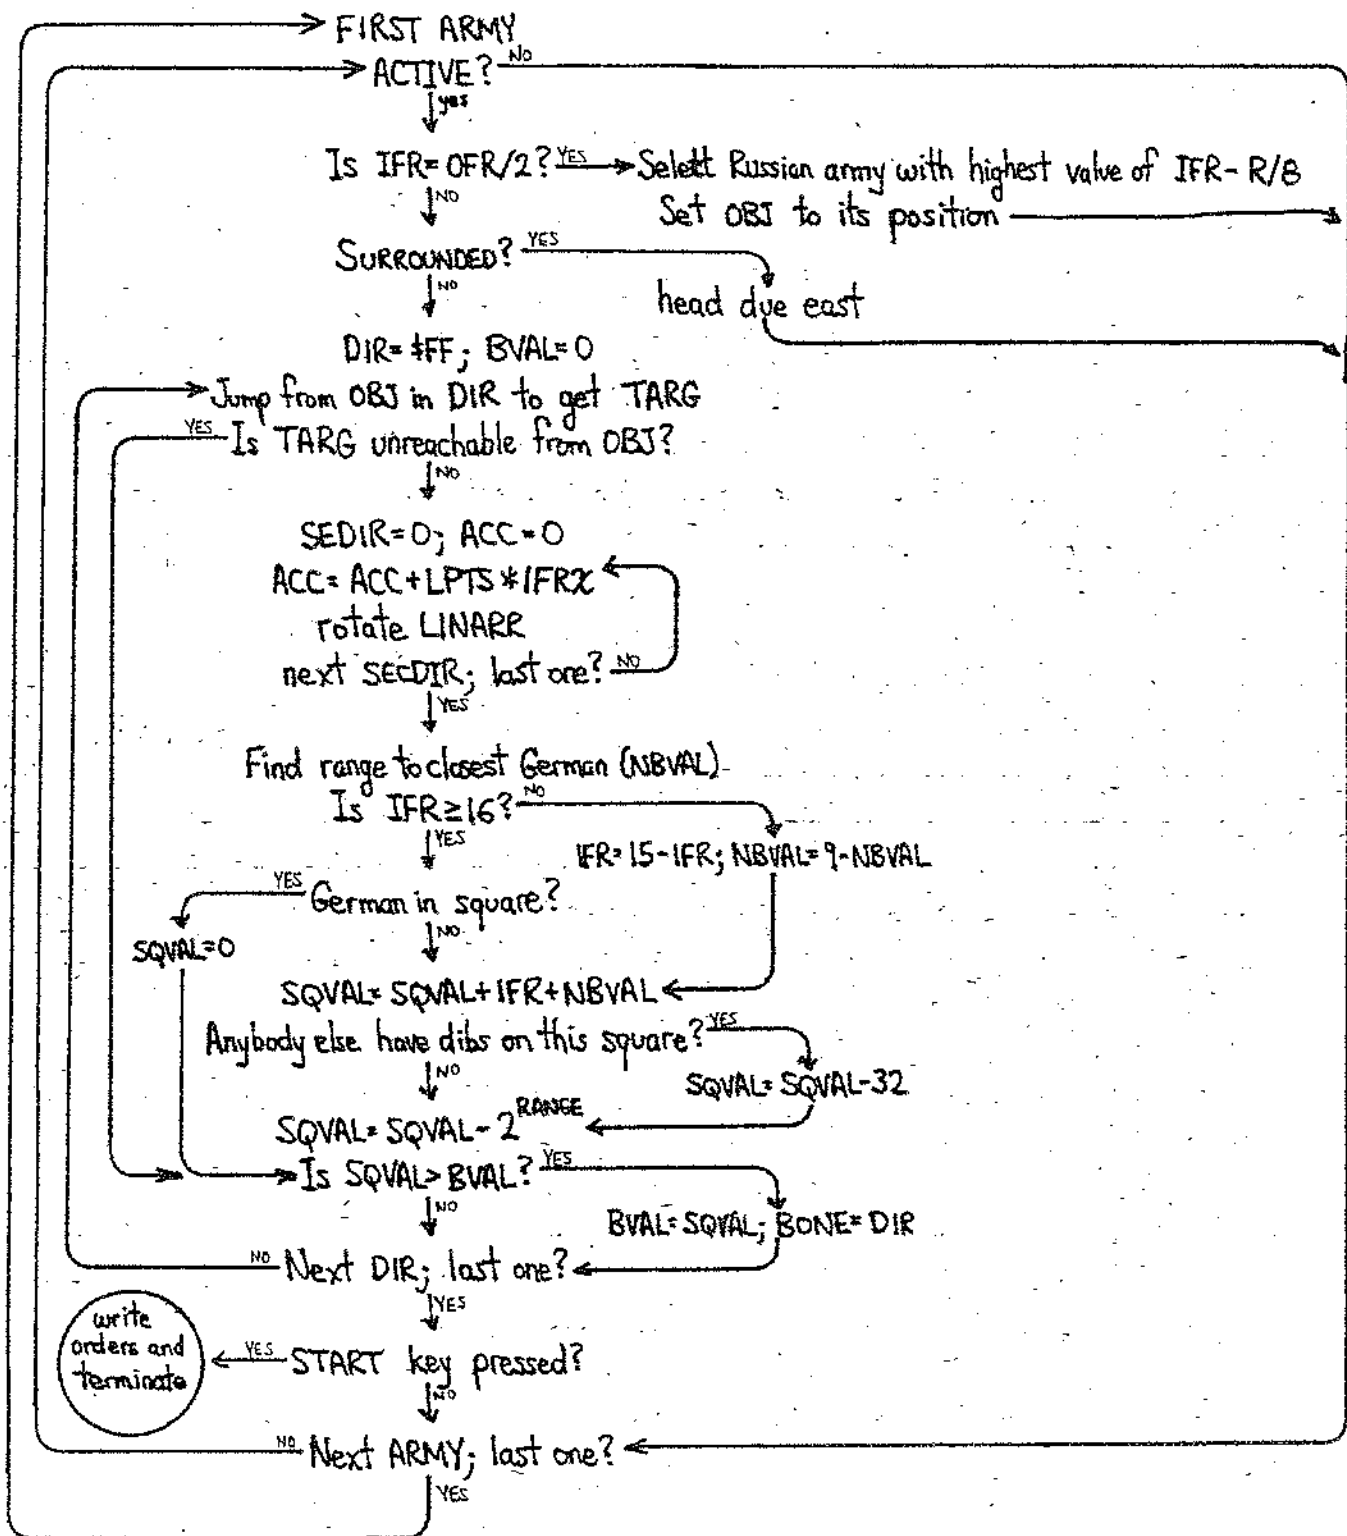 FIRST ARMY
ACTIVE? NO
yes
Is IFR=OFR/2? YES Selett Russian army with highest value of IFR-R/8
NO
Set OBJ to its position
SURROUNDED? YES
NO
head due east
DIR=$FF; BVAL=0
Jump from OBJ in DIR to get TARG
YES Is TARG unreachable from OBJ?
NO
SEDIR=0; ACC=0
ACC=ACC+LPTS*IFRX
rotate LINARR
next SECDIR; last one? NO
YES
Find range to closest German (NBVAL)
Is IFR≥16? NO
YES
IFR=15-IFR; NBVAL=9-NBVAL
YES German in square?
NO
SQVAL=0
SQVAL=SQVAL+IFR+NBVAL
Anybody else have dibs on this square? YES
NO
SQVAL=SQVAL-32
SQVAL=SQVAL-2^RANGE
Is SQVAL>BVAL? YES
NO
BVAL=SQVAL; BONE=DIR
NO Next DIR; last one?
YES
write
orders and
terminate
YES START key pressed?
NO
NO Next ARMY; last one?
YES